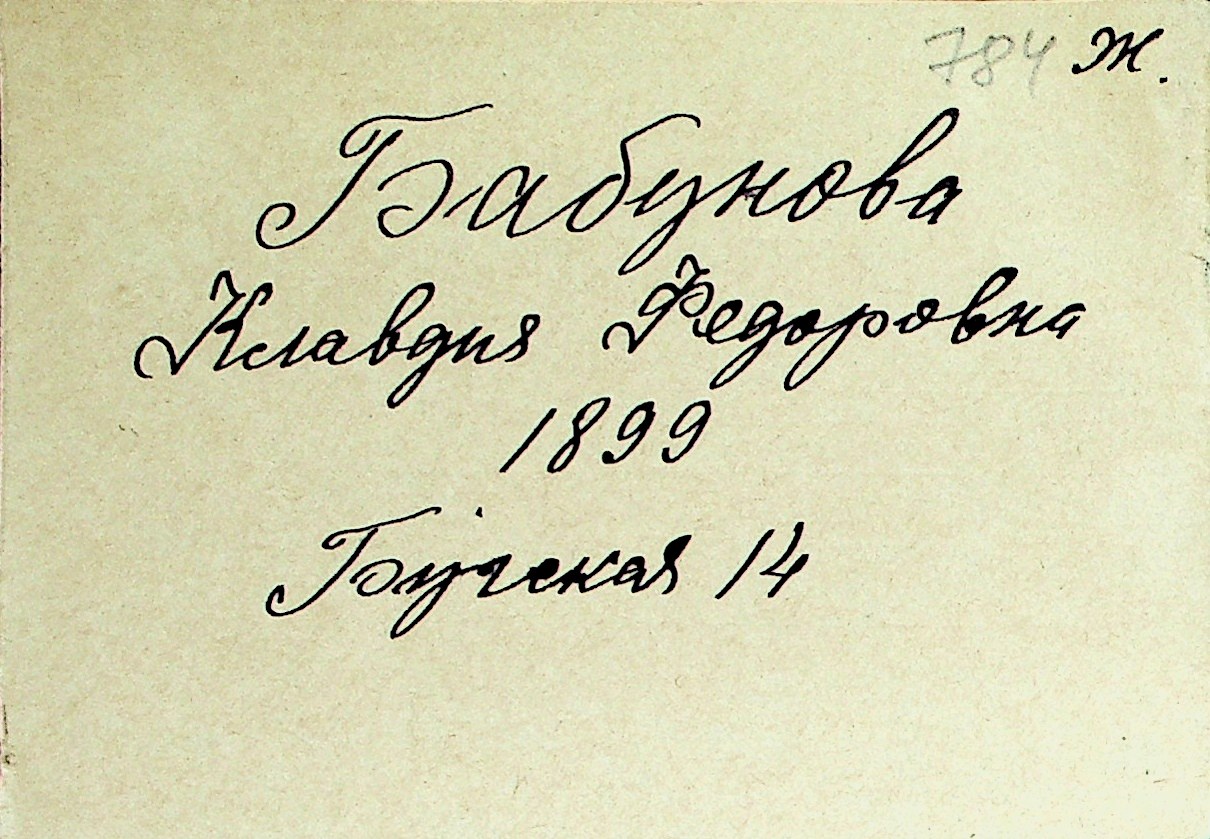 784 Ж.
Бабунова
Клавдия Федоровна
1899
Бугская 14